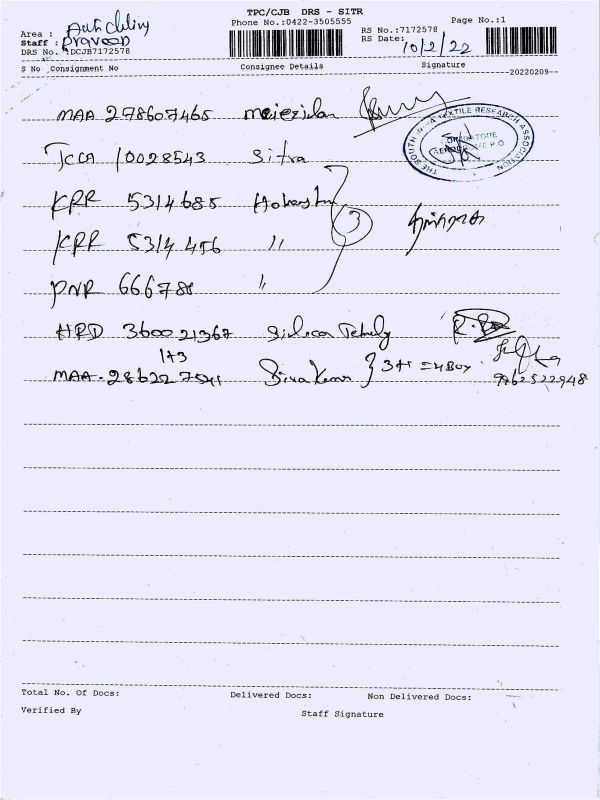 TPC/CJB DRS - SITR
Phone No.:0422-3505555
Page No.:1
Area :
Staff : Praveen
DRS No. :DCJB7172578
RS No.:7172578
RS Date: 10/2/22
S No Consignment No Consignee Details Signature
20220209
MAA 278607465
THE SOUTH INDIA TEXTILE RESEARCH ASSOCIATION
COIMBATORE AERODROME P.O
TCCA 10028543 Sitra
KRR 5314685
3
KRR 5314456 "
PNR 666788 "
HRD 360021367
1+3
MAA - 286227541 Siva Kumar } 3+1 = 4 Box
9962522948
Total No. Of Docs: Delivered Docs: Non Delivered Docs:
Verified By Staff Signature